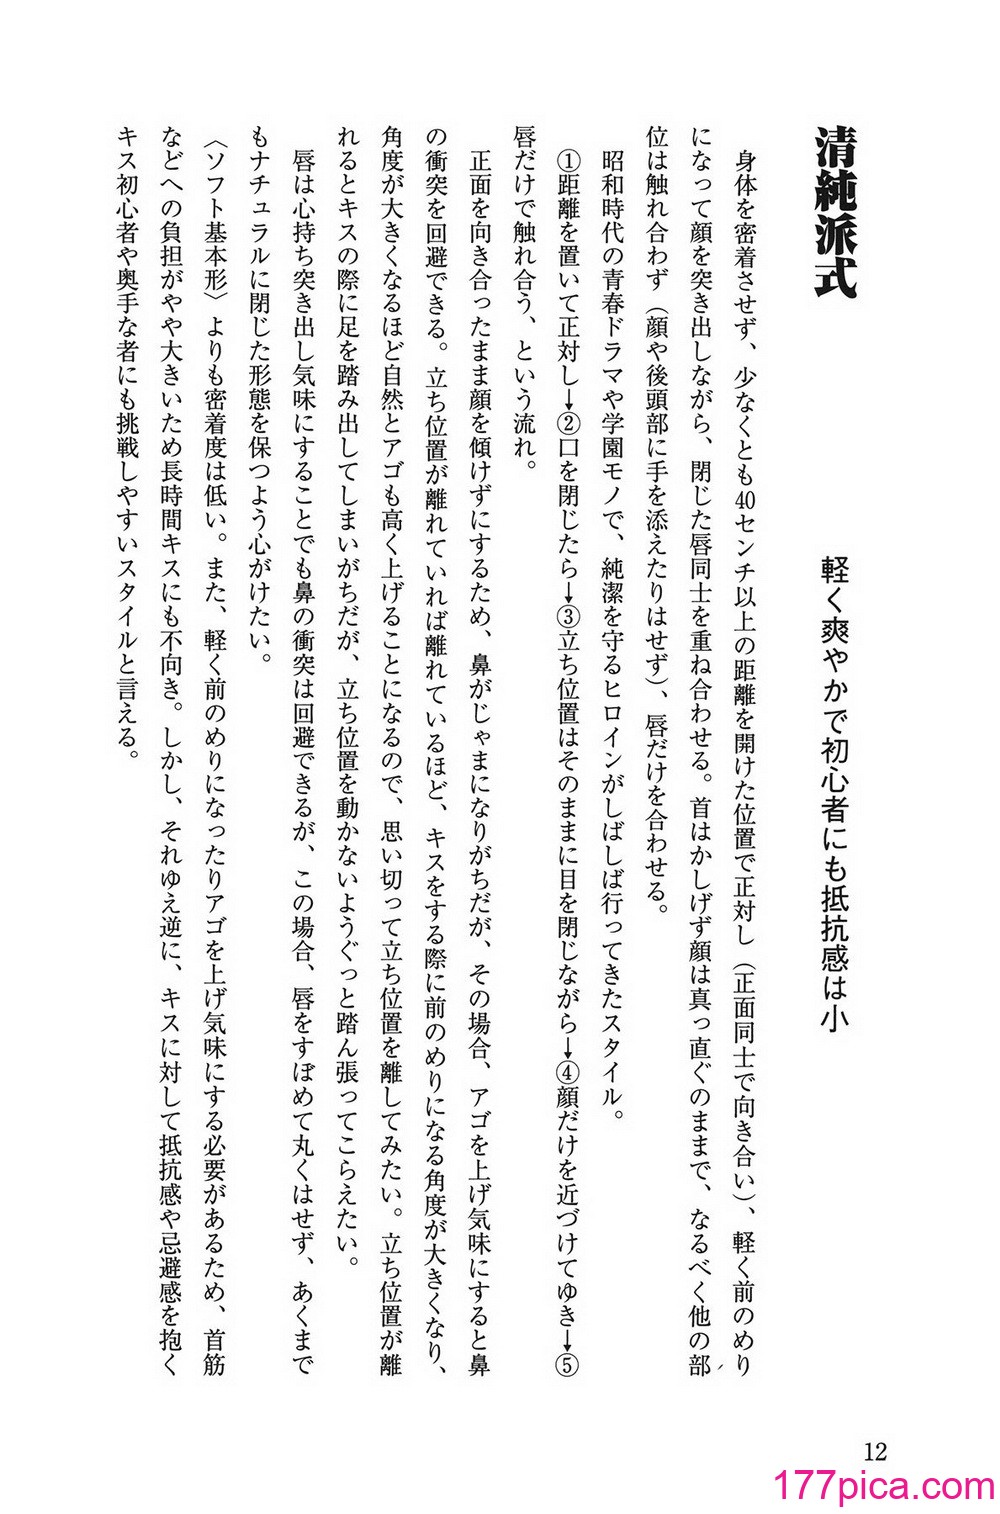 清純派式
軽く爽やかで初心者にも抵抗感は小
身体を密着させず、少なくとも40センチ以上の距離を開けた位置で正対し（正面同士で向き合い）、軽く前のめり
になって顔を突き出しながら、閉じた唇同士を重ね合わせる。首はかしげず顔は真っ直ぐのままで、なるべく他の部
位は触れ合わず（顔や後頭部に手を添えたりはせず）、唇だけを合わせる。
昭和時代の青春ドラマや学園モノで、純潔を守るヒロインがしばしば行ってきたスタイル。
①距離を置いて正対し→②口を閉じたら→③立ち位置はそのままに目を閉じながら→④顔だけを近づけてゆき→⑤
唇だけで触れ合う、という流れ。
正面を向き合ったまま顔を傾けずにするため、鼻がじゃまになりがちだが、その場合、アゴを上げ気味にすると鼻
の衝突を回避できる。立ち位置が離れていれば離れているほど、キスをする際に前のめりになる角度が大きくなり、
角度が大きくなるほど自然とアゴも高く上げることになるので、思い切って立ち位置を離してみたい。立ち位置が離
れるとキスの際に足を踏み出してしまいがちだが、立ち位置を動かないようぐっと踏ん張ってこらえたい。
唇は心持ち突き出し気味にすることでも鼻の衝突は回避できるが、この場合、唇をすぼめて丸くはせず、あくまで
もナチュラルに閉じた形態を保つよう心がけたい。
〈ソフト基本形〉よりも密着度は低い。また、軽く前のめりになったりアゴを上げ気味にする必要があるため、首筋
などへの負担がやや大きいため長時間キスにも不向き。しかし、それゆえ逆に、キスに対して抵抗感や忌避感を抱く
キス初心者や奥手な者にも挑戦しやすいスタイルと言える。
12
177pica.com